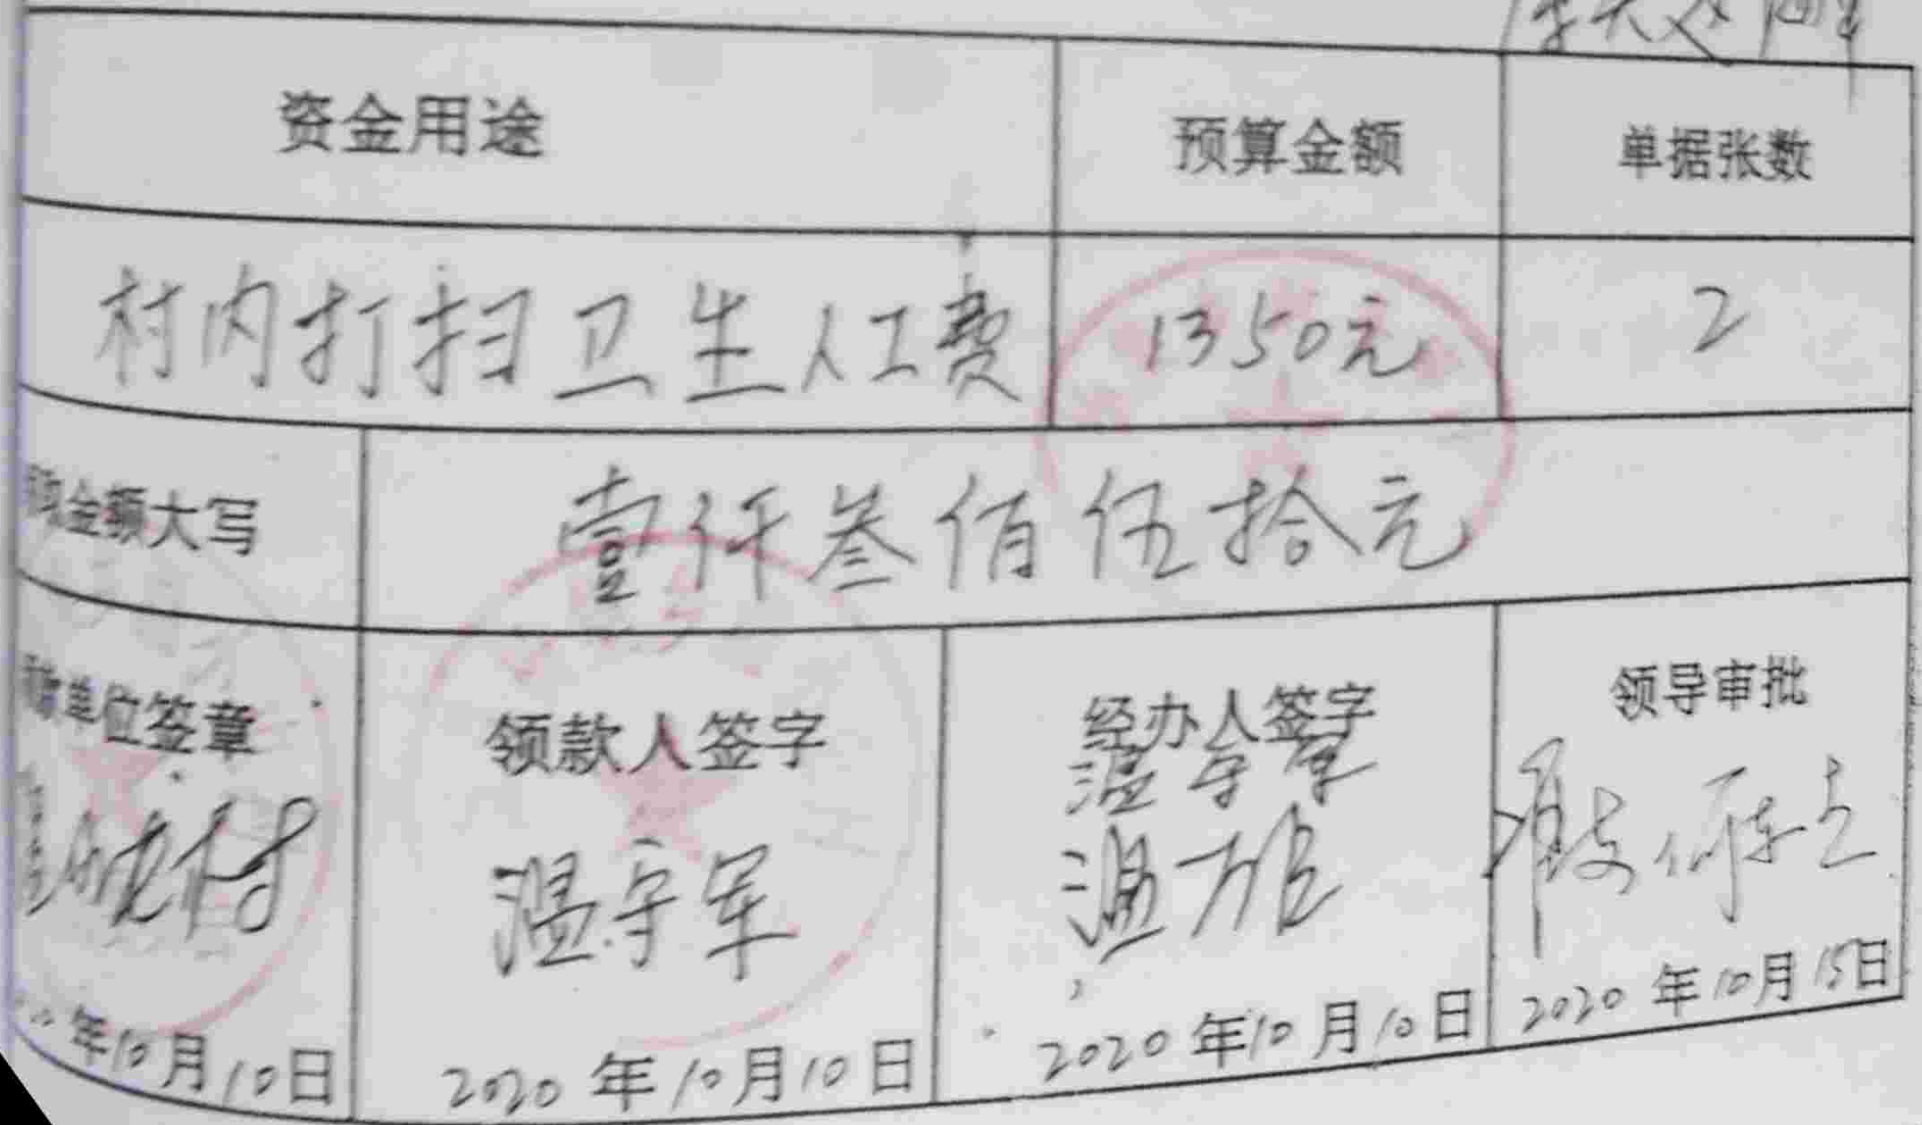 资金用途 预算金额 单据张数
村内打扫卫生人工费 1350元 2
金额大写 壹仟叁佰伍拾元
单位签章 领款人签字 经办人签字 领导审批
温守军
村 温守军 温
年10月10日 2020年10月10日 2020年10月10日 2020年10月15日